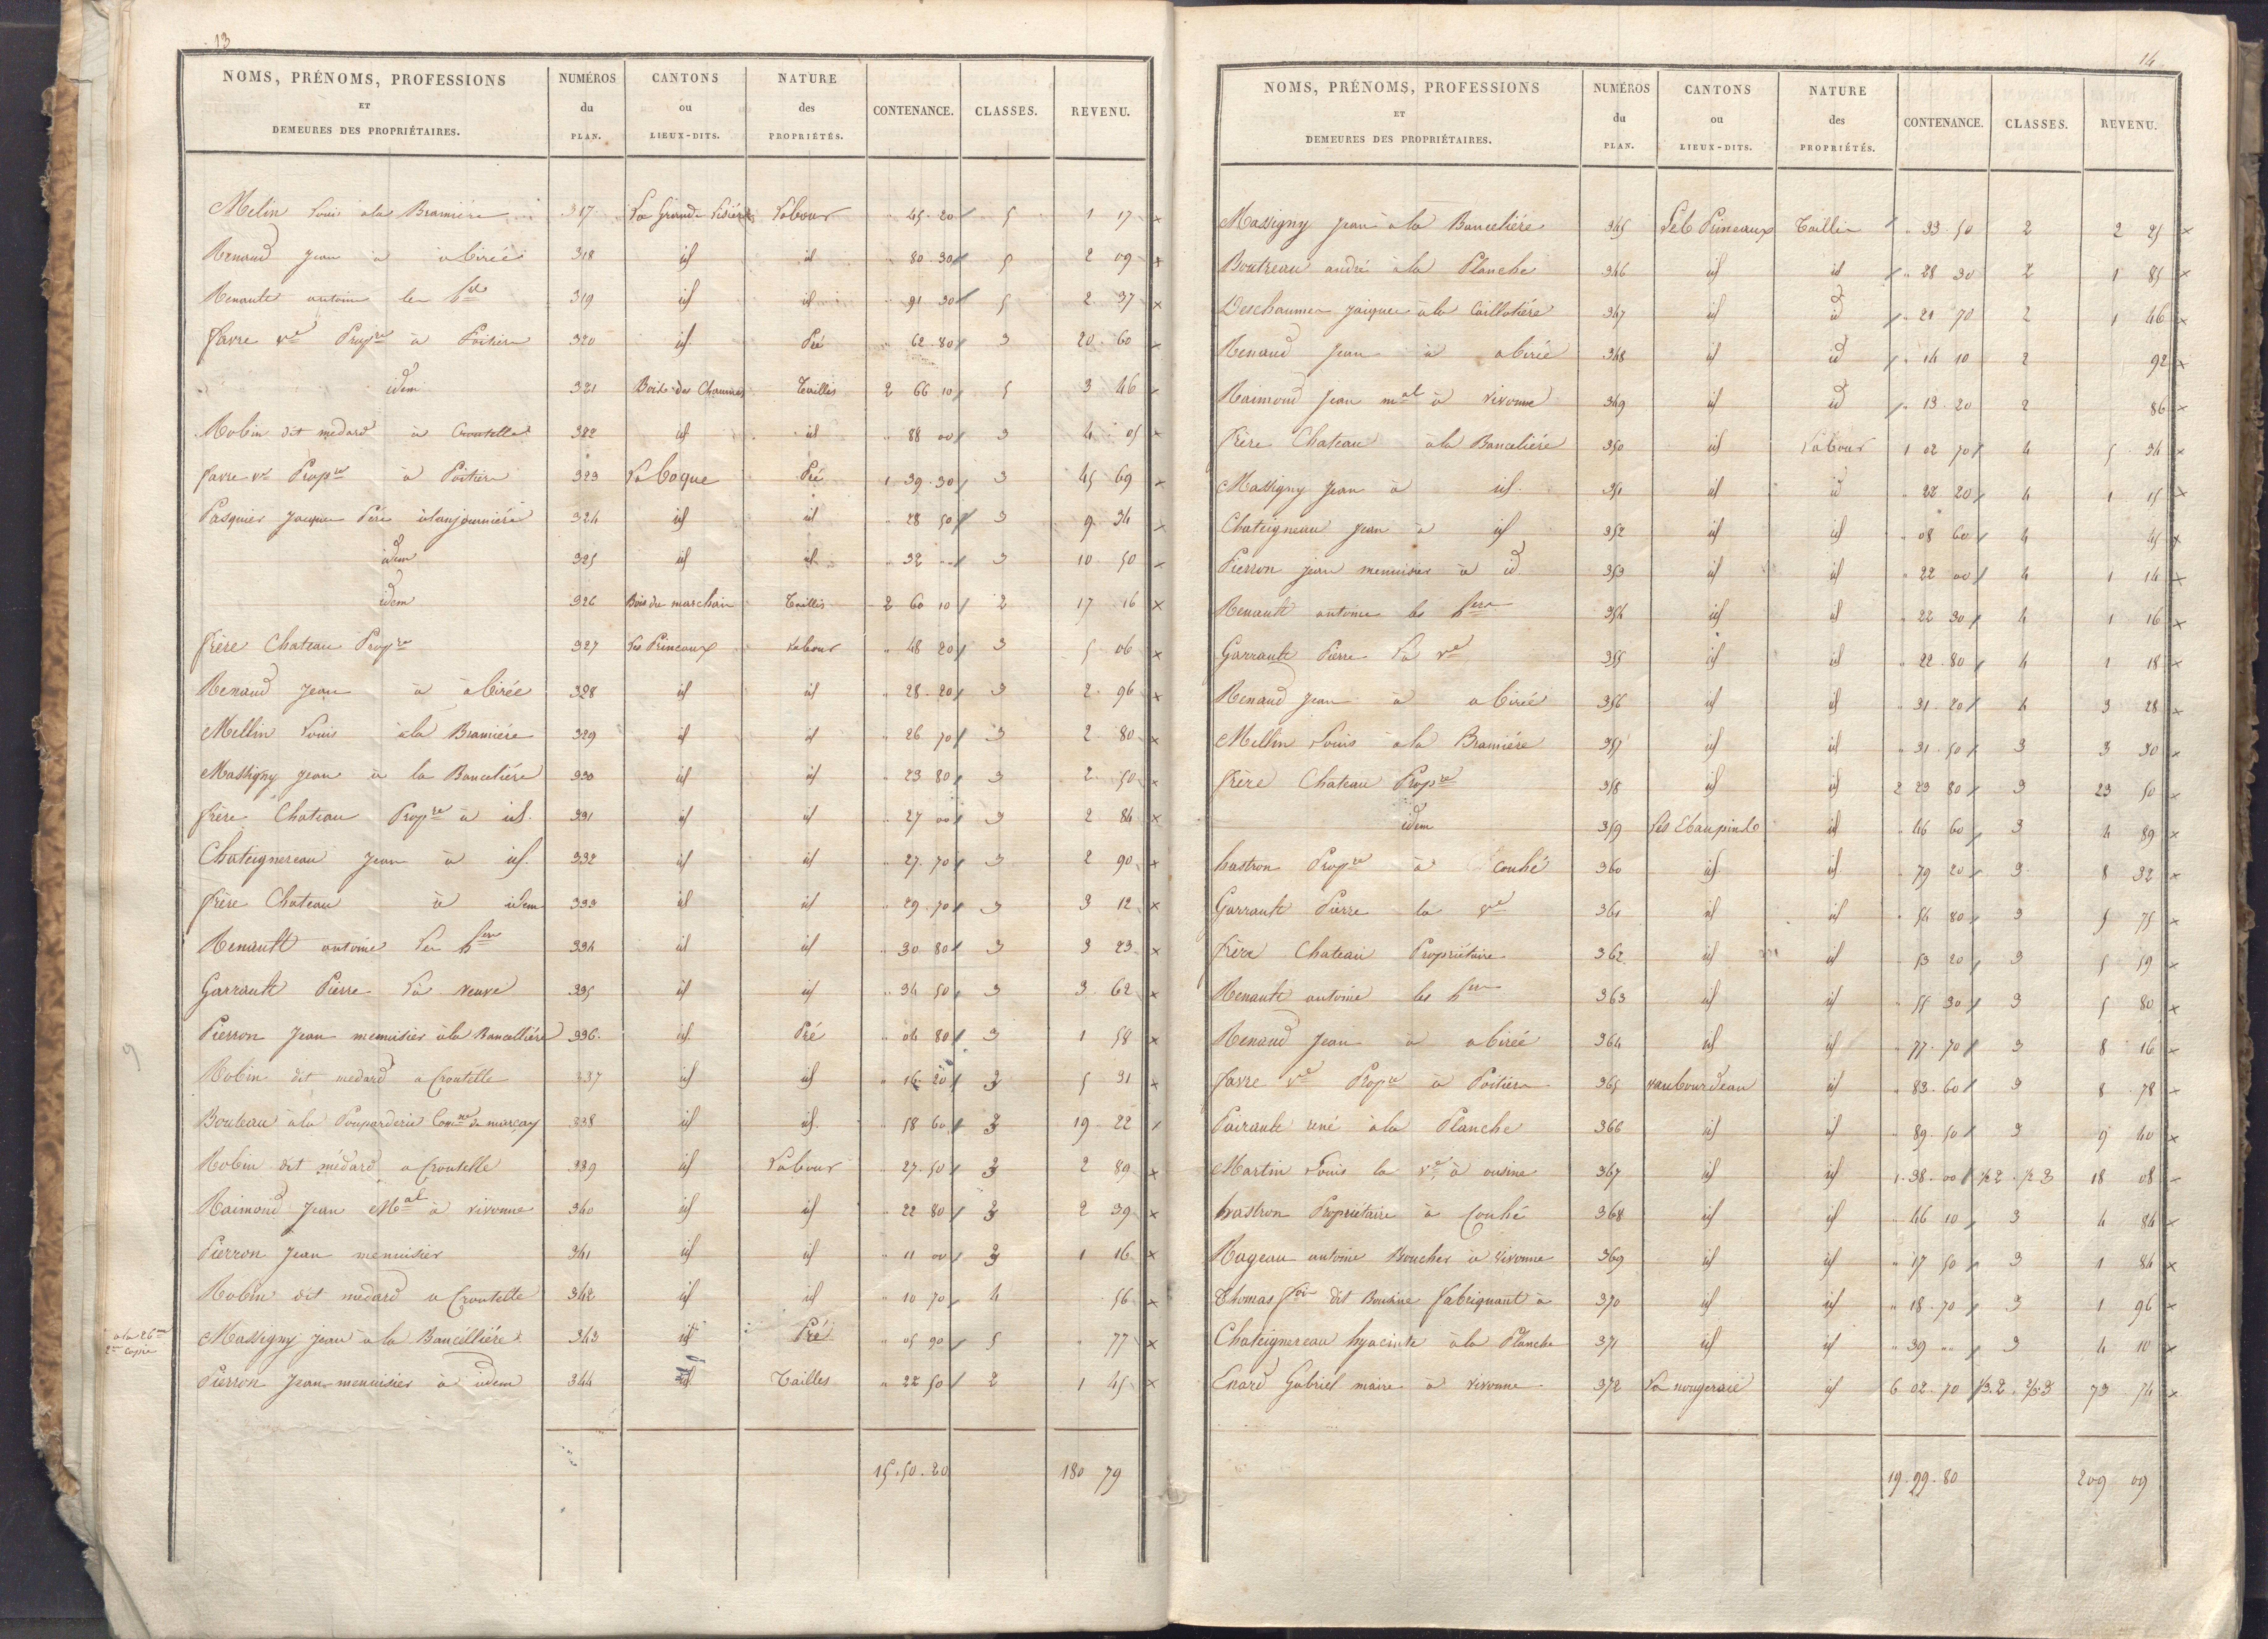 13
NOMS, PRÉNOMS, PROFESSIONS ET DEMEURES DES PROPRIÉTAIRES. NUMÉROS du PLAN. CANTONS ou LIEUX-DITS. NATURE des PROPRIÉTÉS. CONTENANCE. CLASSES. REVENU.
Melin Louis à la Bramiére 317 La Grande Lisiére Labour " 45 20 5 1 17 x
Renaud Jean à abirée 318 id id " 80 30 5 2 09 x
Renault antoine les 319 id id " 91 30 5 2 37 x
favre ve Propre à Poitiers 320 id Pré " 62 80 3 20 60 x
idem 321 Bois des Chaumes Taillis 2 66 10 5 3 46 x
Robin dit medard à Croutelle 322 id id " 88 00 3 4 05 x
favre ve Propre à Poitiers 323 La Coque Pré 1 39 30 3 45 69 x
Pasquier Jacques Pére 324 id id " 28 50 3 9 34 x
idem 325 id id " 32 " 3 10 50 x
idem 326 Bois du marchais Taillis 2 60 10 2 17 16 x
frère Chateau Propre 327 Les Princaux Labour " 48 20 3 5 06 x
Renaud Jean à abirée 328 id id " 28 20 3 2 96 x
Mellin Louis à la Bramiére 329 id id " 26 70 3 2 80 x
Massigny Jean à la Banceliére 330 id id " 23 80 3 2 50 x
frère Chateau Propre à id. 331 id id " 27 00 3 2 84 x
Chateignereau Jean à id. 332 id id " 27 70 3 2 90 x
frère Chateau à idem 333 id id " 29 70 3 3 12 x
Renault antoine Les hers 334 id id " 30 80 3 3 23 x
Garrault Pierre La veuve 335 id id " 34 50 3 3 62 x
Pierron Jean menuisier à la Bancelliére 336 id Pré " 04 80 3 1 58 x
Robin dit medard a Croutelle 337 id id " 16 20 3 5 31 x
Bouteau à la Pouparderie Comne de marcay 338 id id " 58 60 3 19 22 x
Robin dit médard a Croutelle 339 id Labour " 27 50 3 2 89 x
Raimond Jean Mal à vivonne 340 id id " 22 80 3 2 39 x
Pierron Jean menuisier 341 id id " 11 00 3 1 16 x
Robin dit medard a Croutelle 342 id id " 10 70 4 56 x
a la 26me 2me copie
Massigny Jean à la Bancelliére 343 id Pré " 05 90 5 " 77 x
Pierron Jean menuisier à idem 344 id Tailles " 22 50 2 1 45 x
15.50.20 180 79
9
14
NOMS, PRÉNOMS, PROFESSIONS ET DEMEURES DES PROPRIÉTAIRES. NUMÉROS du PLAN. CANTONS ou LIEUX-DITS. NATURE des PROPRIÉTÉS. CONTENANCE. CLASSES. REVENU.
Massigny Jean à la Banceliére 345 Les Princaux Taillis " 33 50 2 2 25 x
Boutreau andré à la Planche 346 id id " 28 30 2 1 85 x
Deschaumes Jacques à la Caillotiére 347 id id " 21 70 2 1 46 x
Renaud Jean à abirée 348 id id " 14 10 2 92 x
Raimond Jean mal à vivonne 349 id id " 13 20 2 86 x
frère Chateau à la Banceliére 350 id Labour 1 02 70 4 5 34 x
Massigny Jean à id. 351 id id " 22 20 4 1 15 x
Chateigneau Jean à id 352 id id " 08 60 4 45 x
Pierron jean menuisier à id 353 id id " 22 00 4 1 14 x
Renault antoine les hers 354 id id " 22 30 4 1 16 x
Garrault Pierre La ve 355 id id " 22 80 4 1 18 x
Renaud Jean à abirée 356 id id " 31 20 4 3 28 x
Mellin Louis à la Bramiére 357 id id " 31 50 3 3 30 x
frère Chateau Propre 358 id id 2 23 80 3 23 50 x
idem 359 Les Ebaupinds id " 46 60 3 4 89 x
hastron Propre à Couhé 360 id id " 79 20 3 8 32 x
Garrault Pierre la ve 361 id id " 54 80 3 5 75 x
frère Chateau Propriétaire 362 id id " 53 20 3 5 59 x
Renault antoine les hers 363 id id " 55 30 3 5 80 x
Renaud Jean à abirée 364 id id " 77 70 3 8 16 x
favre ve Propre à Poitiers 365 vaubourdeau id " 83 60 3 8 78 x
Pairault rené à la Planche 366 id id " 89 50 3 9 40 x
Martin Louis la ve à ousine 367 id id 1 38 00 1/2 2 1/2 3 18 08 x
hastron Propriétaire à Couhé 368 id id " 46 10 3 4 84 x
Rageau antoine Boucher à vivonne 369 id id " 17 50 3 1 84 x
Thomas fois dit fabriquant à 370 id id " 18 70 3 1 96 x
Chateignereau hyacinte à la Planche 371 id id " 39 " 3 4 10 x
Enard Gabriel maire à vivonne 372 La nougeraie id 6 02 70 1/3.2. 2/3.3 73 74 x
19.99.80 209 09